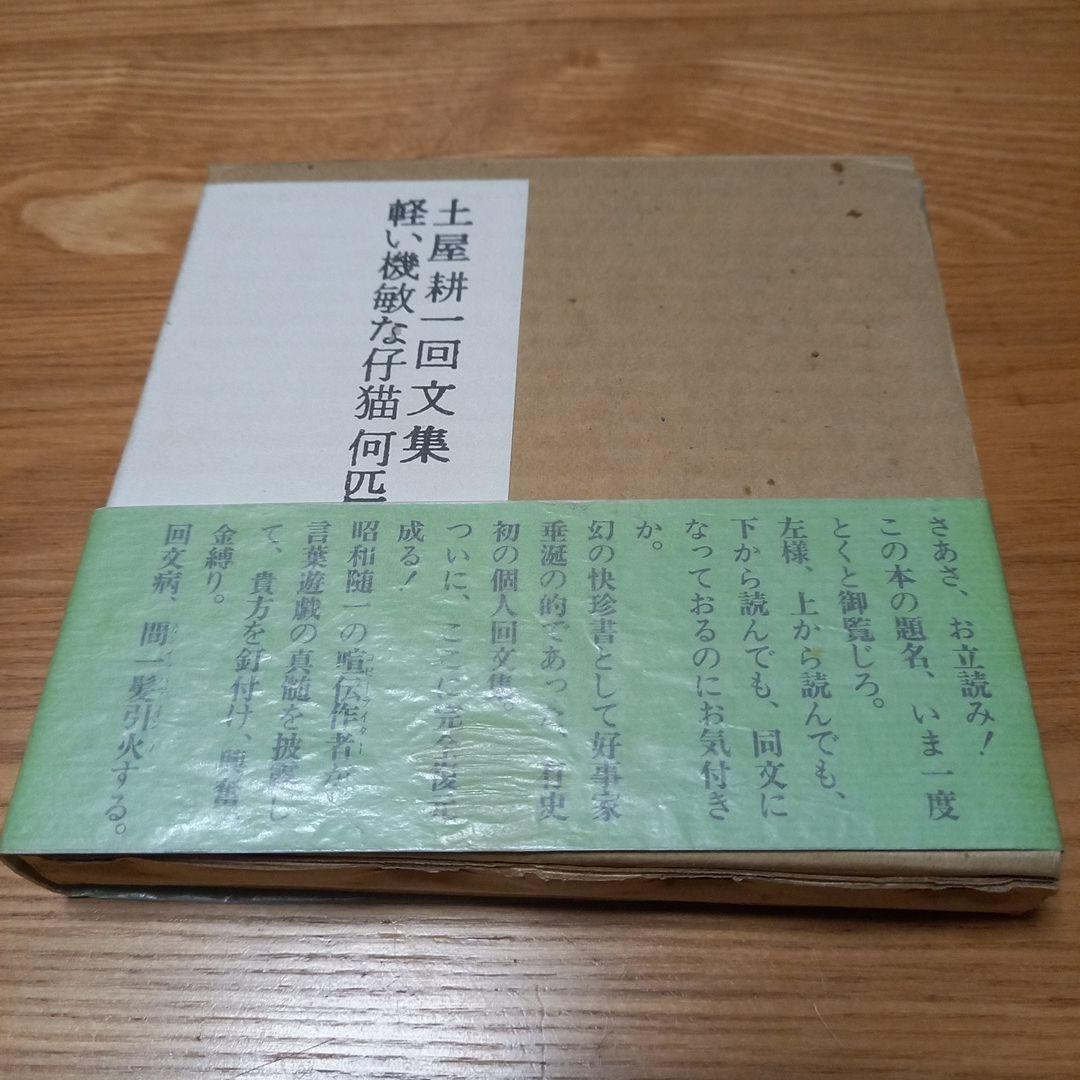 土屋耕一回文集
軽い機敏な仔猫何匹
さあさ、お立読み！
この本の題名、いま一度
とくと御覧じろ。
左様、上から読んでも、
下から読んでも、同文に
なっておるのにお気付き
か。
幻の快珍書として好事家
垂涎の的であった、有史
初の個人回文集。
ついに、ここに完全復元
成る！
昭和随一の喧伝作者が
コピーライター
言葉遊戯の真髄を披露し
て、貴方を釘付け、興奮、
金縛り。
回文病、間一髪引火する。